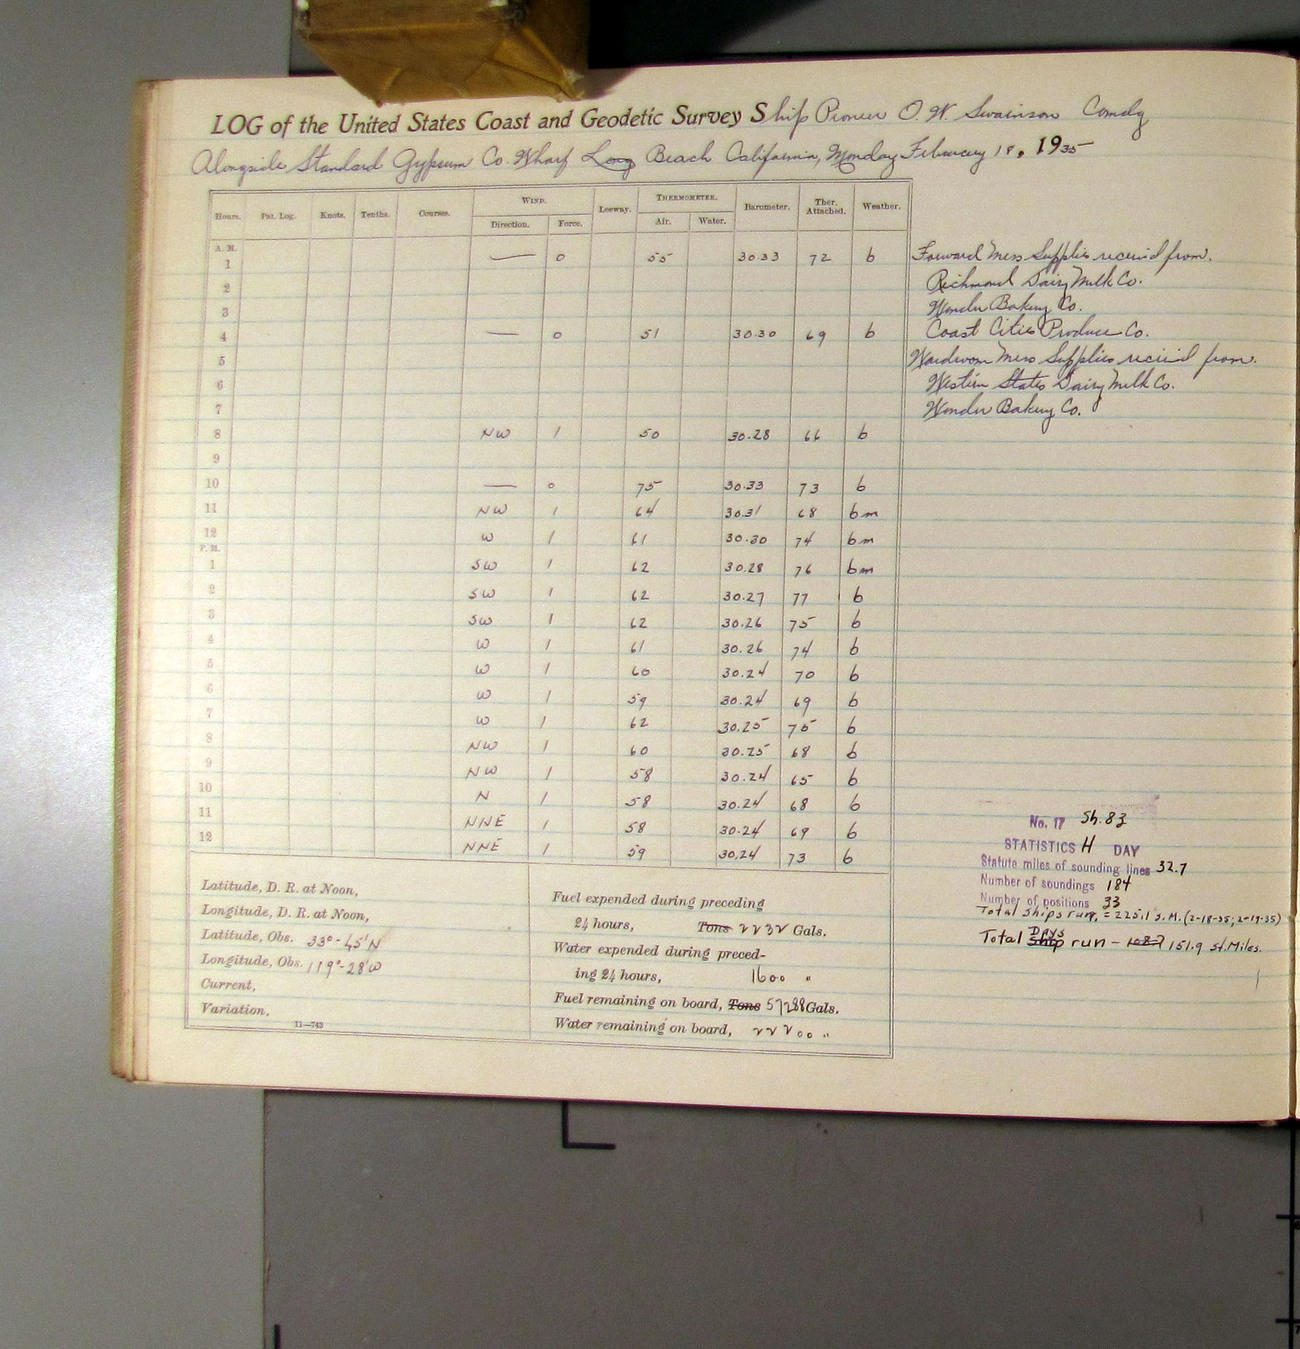 LOG of the United States Coast and Geodetic Survey Ship Pioneer O. W. Swainson Comdg
Alongside Standard Gypsum Co. Wharf Long Beach California, Monday February 18, 1935
Hours. Pat. Log. Knots. Tenths. Courses. WIND. Direction. Force. Leeway. THERMOMETER. Air. Water. Barometer. Ther. Attached. Weather.
A. M.
1 — 0 55 30.33 72 b Forward Mess Supplies received from.
2 Richmond Dairy Milk Co.
3 Wonder Bakery Co.
4 — 0 51 30.30 69 b Coast Cities Produce Co.
5 Wardroom Mess Supplies received from.
6 Western States Dairy Milk Co.
7 Wonder Bakery Co.
8 NW 1 50 30.28 66 b
9
10 — 0 75 30.33 73 b
11 NW 1 64 30.31 68 bm
12 W 1 61 30.30 74 bm
P. M.
1 SW 1 62 30.28 76 bm
2 SW 1 62 30.27 77 b
3 SW 1 62 30.26 75 b
4 W 1 61 30.26 74 b
5 W 1 60 30.24 70 b
6 W 1 59 30.24 69 b
7 W 1 62 30.25 75 b
8 NW 1 60 30.25 68 b
9 NW 1 58 30.24 65 b
10 N 1 58 30.24 68 b
11 NNE 1 58 30.24 69 b
12 NNE 1 59 30.24 73 b
No. 17 Sh. 83
STATISTICS H DAY
Statute miles of sounding lines 32.7
Number of soundings 184
Number of positions 33
Total ships run, = 225.1 S.M. (2-18-35; 2-19-35)
Total ship Days run - 151.9 St. Miles.
Latitude, D. R. at Noon,
Longitude, D. R. at Noon,
Latitude, Obs. 33°-45'N
Longitude, Obs. 119°-28'W
Current,
Variation,
11—743
Fuel expended during preceding
24 hours, Tons 2232 Gals.
Water expended during preced-
ing 24 hours, 1600 "
Fuel remaining on board, Tons 57288 Gals.
Water remaining on board, 22200 "